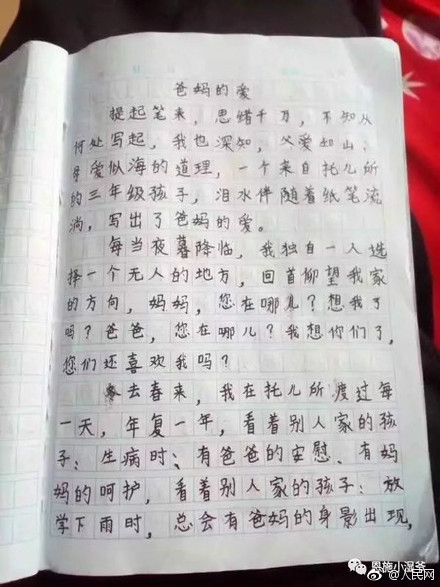 爸妈的爱
提起笔来，思绪千万，不知从
何处写起，我也深知，父爱如山；
母爱似海的道理，一个来自托儿所
的三年级孩子，泪水伴随着纸笔流
淌，写出了爸妈的爱。
每当夜暮降临，我独自一人选
择一个无人的地方，回首仰望我家
的方向，妈妈，您在哪儿？想我了
吗？爸爸，您在哪儿？我想你们了，
您们还喜欢我吗？
冬去春来，我在托儿所度过每
一天，年复一年，看着别人家的孩
子：生病时；有爸爸的安慰、有妈
妈的呵护，看着别人家的孩子：放
学下雨时，总会有爸妈的身影出现，
恩施小湿爹
@人民网